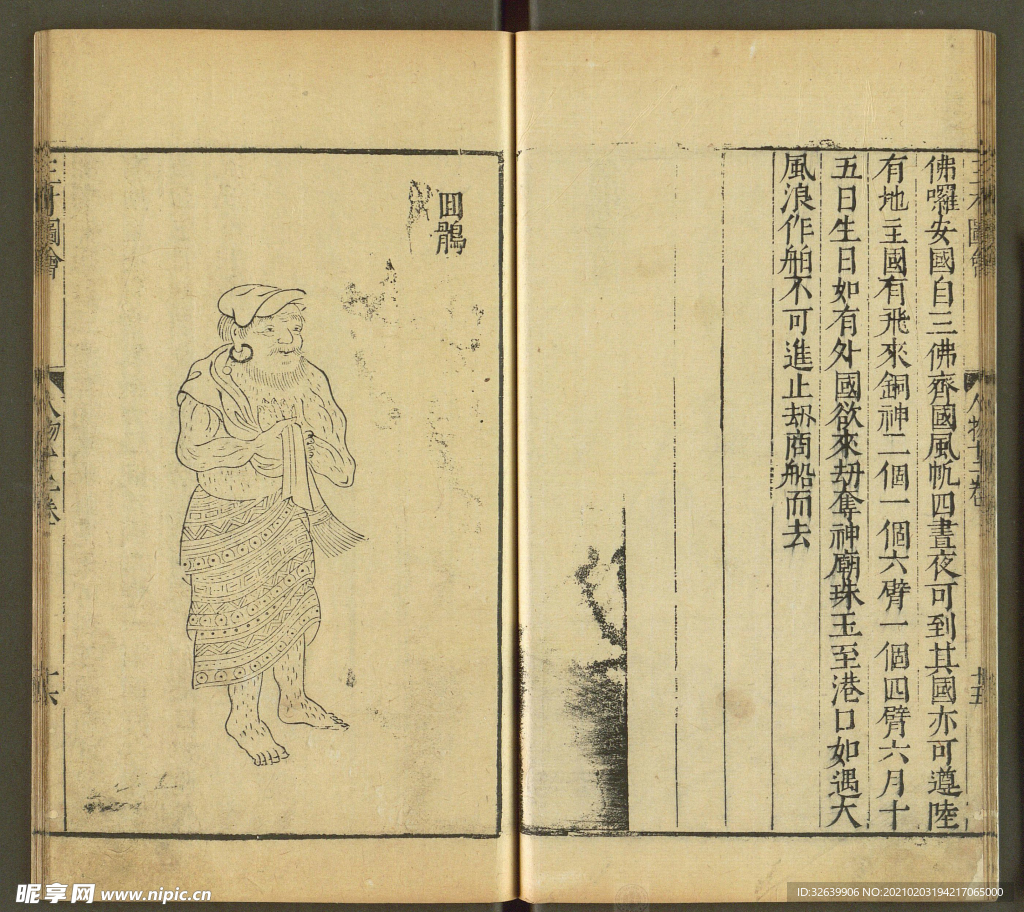 佛囉安國自三佛齊國風帆四晝夜可到其國亦可遵陸
有地主國有飛來銅神二個一個六臂一個四臂六月十
五日生日如有外國欲來劫奪神廟珠玉至港口如遇大
風浪作船不可進止刼商船而去
十五
回鶻
圖會
昵享网 www.nipic.cn
ID:32639906 NO:20210203194217065000